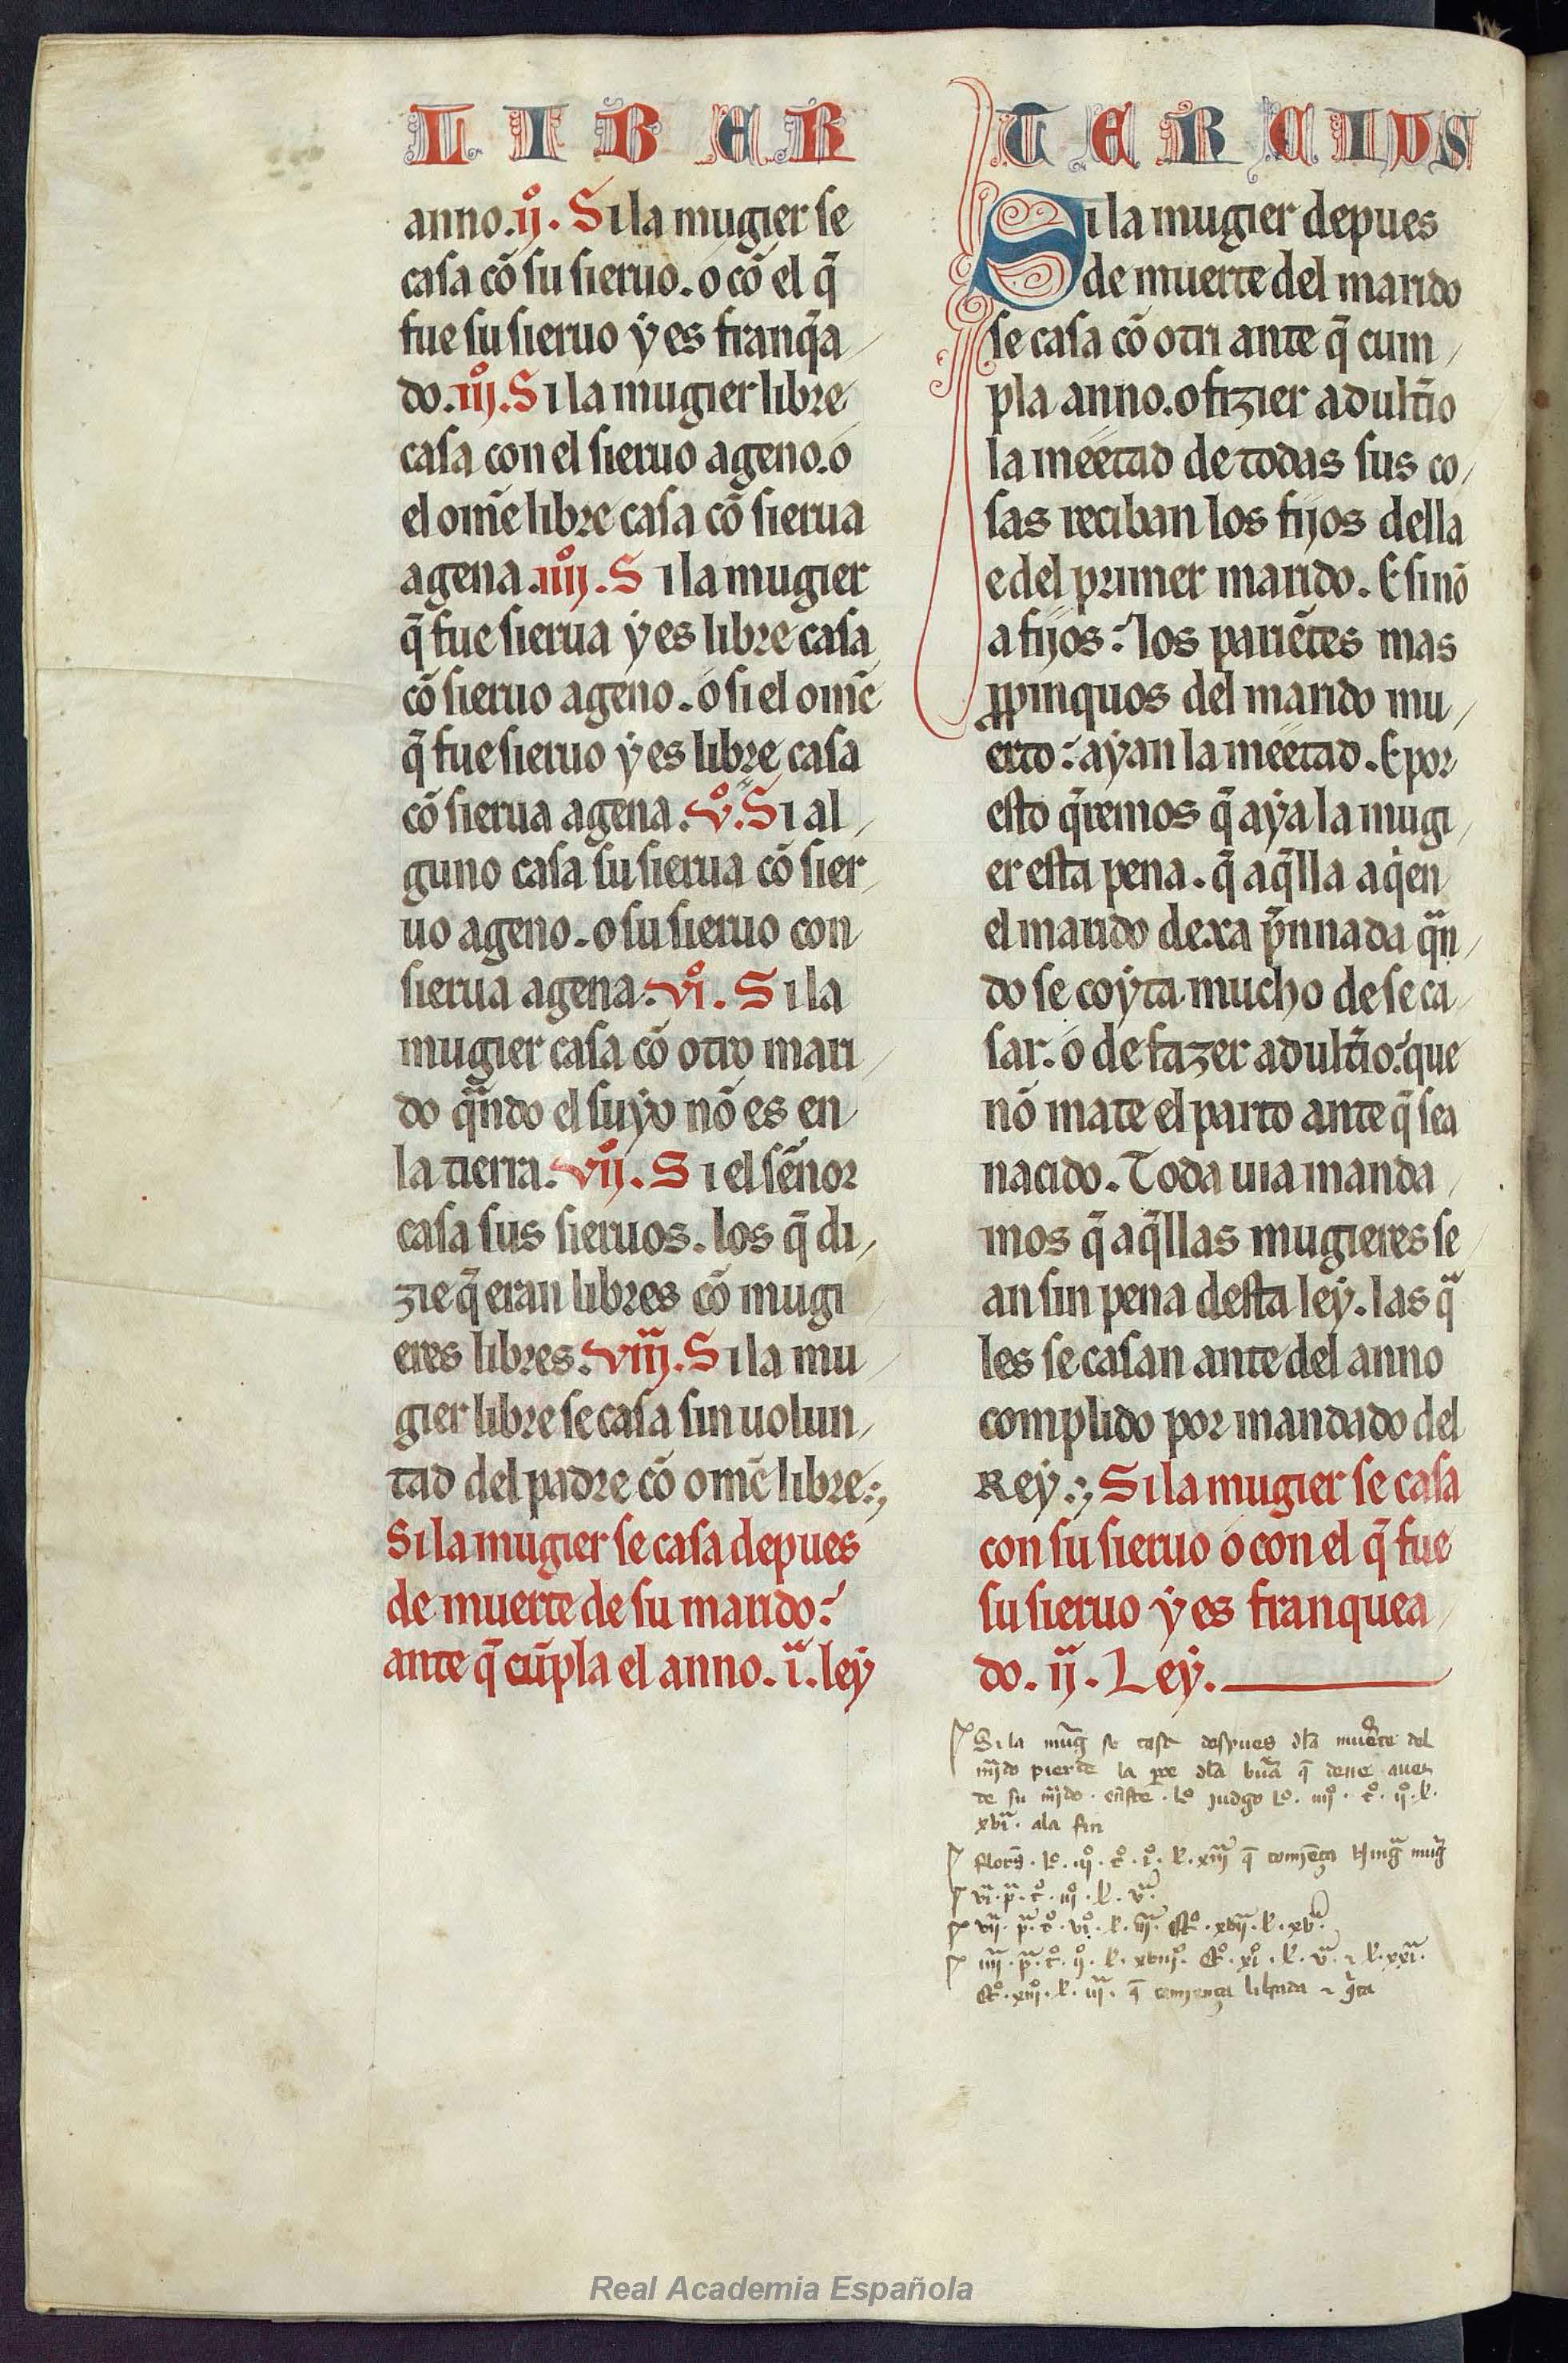 LIBER
anno.ijº. Si la mugier se
casa cõ su sieruo. o cõ el q̃
fue su sieruo ẏ es franq̃a
do.iijº. Si la mugier libre
casa con el sieruo ageno. o
el om̃e libre casa cõ sierua
agena.iiijº. Si la mugier
q̃ fue sierua ẏ es libre casa
cõ sieruo ageno. o si el om̃e
q̃ fue sieruo ẏ es libre casa
cõ sierua agena. vº. Si al
guno casa su sierua cõ sier
uo ageno. o su sieruo con
sierua agena. viº. Si la
mugier casa cõ otro mari
do qñdo el suẏo nõ es en
la tierra. vijº. Si el sẽnor
casa sus sieruos. los q̃ di
zie q̃ eran libres cõ mugi
eres libres. viijª. Si la mu
gier libre se casa sin uolun
tad del padre cõ om̃e libre.
Si la mugier se casa depues
de muerte de su marido:
ante q̃ cũpla el anno. iª. leẏ
TERCIUS
Si la mugier depues
de muerte del marido
se casa cõ otri ante q̃ cum
pla anno. o fizier adult̃io
la meetad de todas sus co
sas reciban los fijos della
e del primer marido. E si nõ
a fijos: los pariẽtes mas
ꝓpinquos del marido mu
erto: aẏan la meetad. E por
esto q̃remos q̃ aẏa la mugi
er esta pena. q̃ aq̃lla a qͥen
el marido dexa p̃nnada qñ
do se coẏta mucho de se ca
sar. o de fazer adult̃io: que
nõ mate el parto ante q̃ sea
nacido. Toda uia manda
mos q̃ aq̃llas mugieres se
an sin pena desta leẏ. las qª
les se casan ante del anno
complido por mandado del
Reẏ. Si la mugier se casa
con su sieruo o con el q̃ fue
su sieruo ẏ es franquea
do. ijª. Leẏ.
Si la mug̃ se casa despues dla muerte del
mͥdo pierde la pͣte dla bũa q̃ deue auer
de su mͥdo. lº judgo lº. iiijº. tº. ijº. l.
xviª. ala fin
lº. iijº. tº. iº. l. xiijª q̃ comjẽça mug̃
viª. pª. tº. iijº. l. vª.
vijª. pª. tº. viº. l. iijª. tº. xvijª. l. xvª.
iiijª. pª. tº. ijº. l. xviijº. tº. xiº. l. vª. l. xxiª.
tº. xiijº. l. iijª. q̃ comjença
Real Academia Española